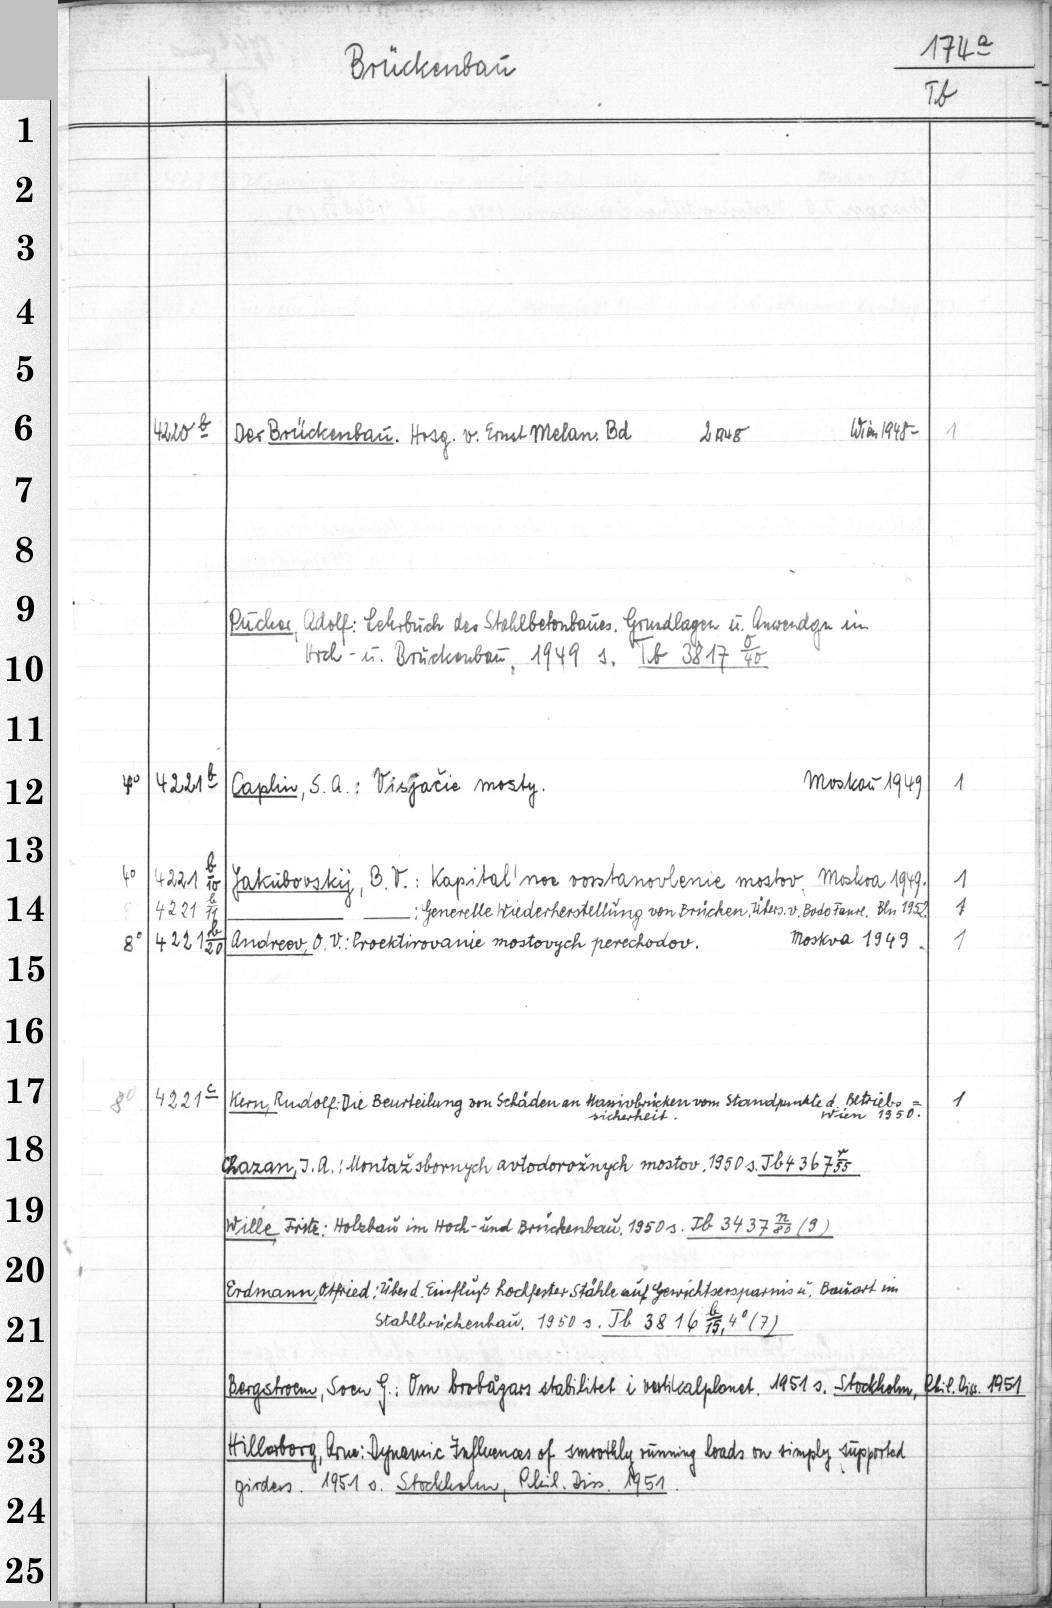 174a
Brückenbau
Tb
1
2
3
4
5
6 4220 b Der Brückenbau. Hrsg. v. Ernst Melan. Bd 2 1948 Wien 1948- 1
7
8
9 Pucher, Adolf: Lehrbuch des Stahlbetonbaues. Grundlagen u. Anwendgn im
10 Hoch- u. Brückenbau, 1949 s. Tb 3817 /40
11
12 4° 4221 b Caplin, S. A.: Visjačie mosty. Moskau 1949 1
13
4° 4221 b/10 Jakubovskij, B. V.: Kapital'noe vosstanovlenie mostov, Moskva 1949. 1
14 8 4221 b/11 ______ ___: Generelle Wiederherstellung von Brücken. Übers. v. Bodo Bln 1952. 1
8° 4221 b/20 Andreev, O. V.: Proektirovanie mostovych perechodov. Moskva 1949. 1
15
16
17 8° 4221 c Kern, Rudolf: Die Beurteilung von Schäden an Massivbrücken vom Standpunkte d. Betriebs= 1
sicherheit. Wien 1950.
18 Chazan, I. A.: Montaž sbornych avtodorožnych mostov. 1950 s. Tb 4367 r/55
19 Wille, Fritz: Holzbau im Hoch- und Brückenbau. 1950 s. Tb 3437 n/80 (9)
20 Erdmann, Otfried: Über d. Einfluß hochfester Stähle auf Gewichtsersparnis u. Bauart im
21 Stahlbrückenbau. 1950 s. Tb 3816 b/15, 4° (7)
22 Bergstroem, Sven G.: Om brobågars stabilitet i vertikalplanet. 1951 s. Stockholm, Phil. Diss. 1951
23 Hillerborg, Arne: Dynamic Influences of smoothly running loads on simply supported
girders. 1951 s. Stockholm, Phil. Diss. 1951.
24
25